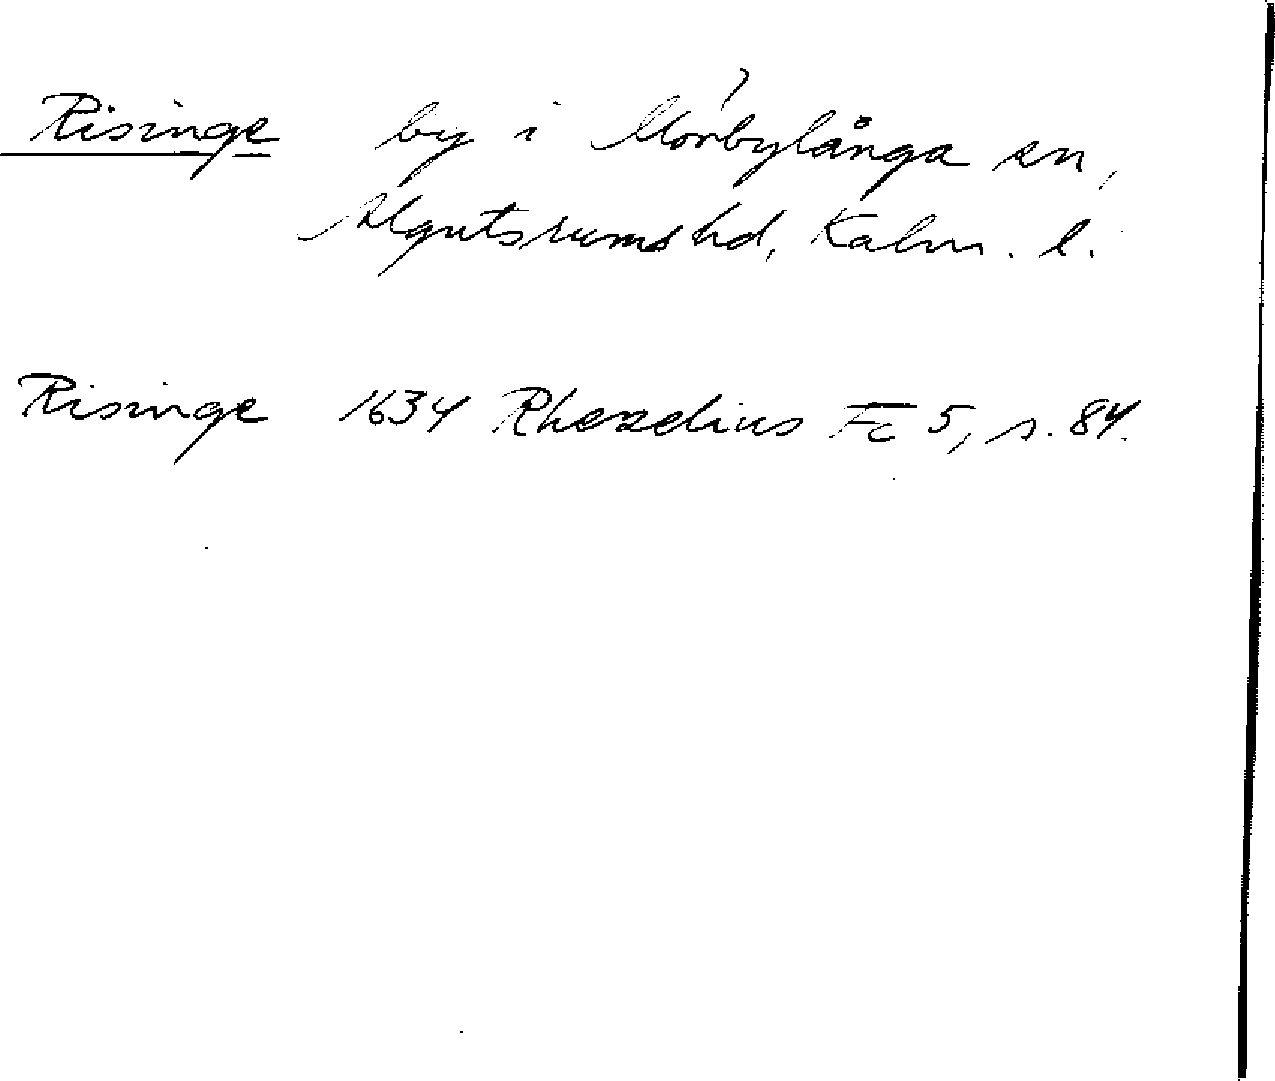 Risinge by i Mörbylånga sn,
Algutsrums hd, Kalm. l.
Risinge 1634 Rhezelius Fc 5, s. 84.